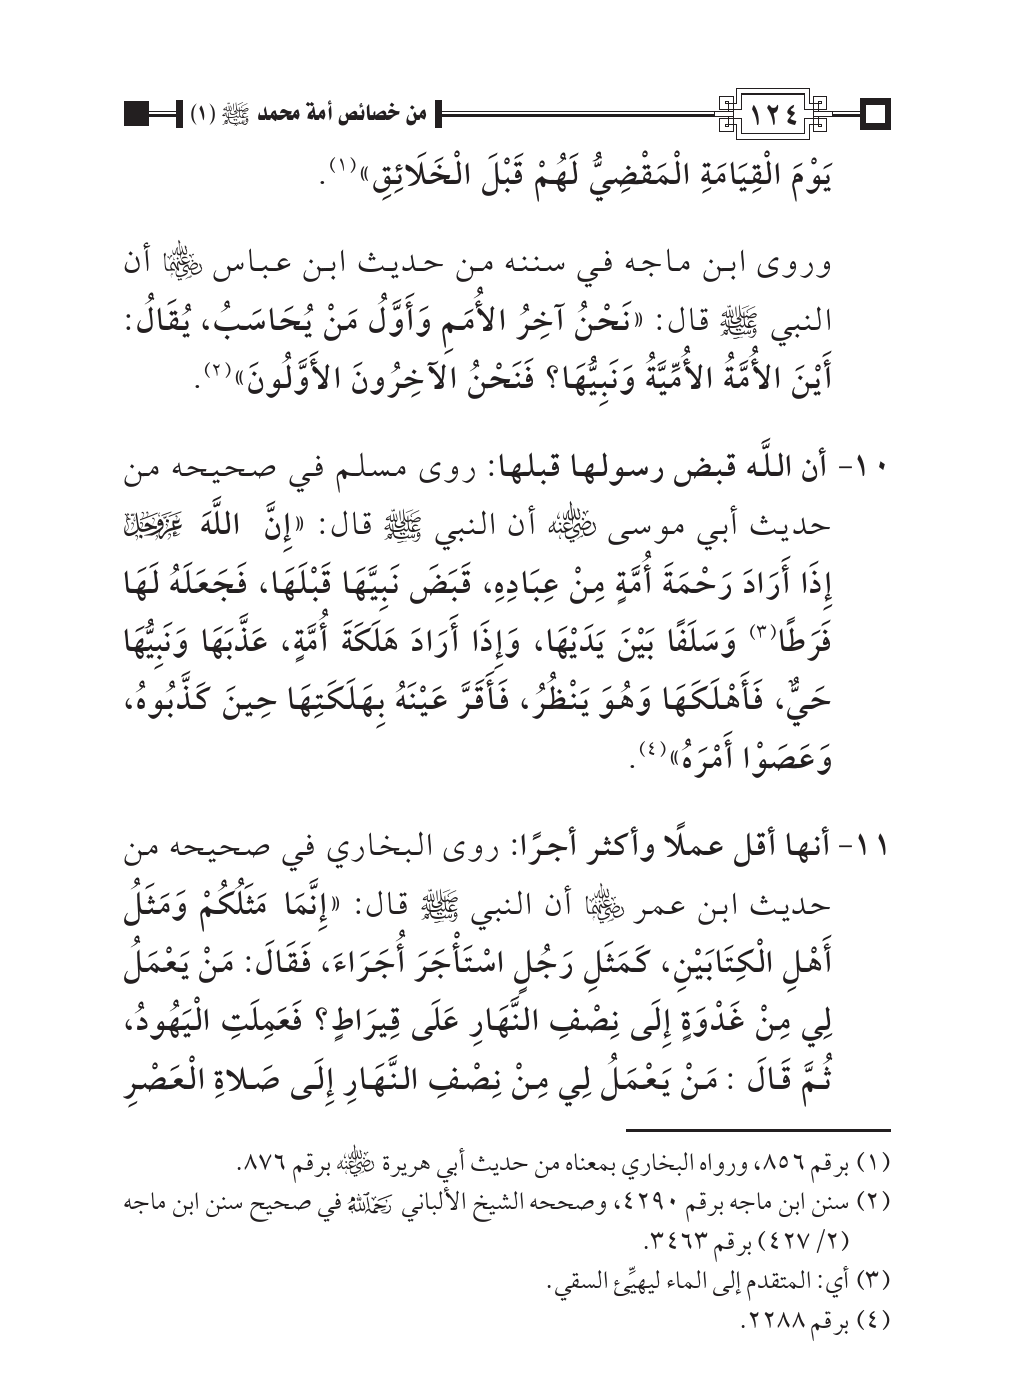 ١٢٤ من خصائص أمة محمد ﷺ (١)
يَوْمَ الْقِيَامَةِ الْمَقْضِيُّ لَهُمْ قَبْلَ الْخَلَائِقِ»(١).
وروى ابن ماجه في سننه من حديث ابن عباس رضي الله عنهما أن
النبي ﷺ قال: «نَحْنُ آخِرُ الأُمَمِ وَأَوَّلُ مَنْ يُحَاسَبُ، يُقَالُ:
أَيْنَ الأُمَّةُ الأُمِّيَّةُ وَنَبِيُّهَا؟ فَنَحْنُ الآخِرُونَ الأَوَّلُونَ»(٢).
١٠- أن اللَّه قبض رسولها قبلها: روى مسلم في صحيحه من
حديث أبي موسى رضي الله عنه أن النبي ﷺ قال: «إِنَّ اللَّهَ عَزَّ وَجَلَّ
إِذَا أَرَادَ رَحْمَةَ أُمَّةٍ مِنْ عِبَادِهِ، قَبَضَ نَبِيَّهَا قَبْلَهَا، فَجَعَلَهُ لَهَا
فَرَطًا(٣) وَسَلَفًا بَيْنَ يَدَيْهَا، وَإِذَا أَرَادَ هَلَكَةَ أُمَّةٍ، عَذَّبَهَا وَنَبِيُّهَا
حَيٌّ، فَأَهْلَكَهَا وَهُوَ يَنْظُرُ، فَأَقَرَّ عَيْنَهُ بِهَلَكَتِهَا حِينَ كَذَّبُوهُ،
وَعَصَوْا أَمْرَهُ»(٤).
١١- أنها أقل عملًا وأكثر أجرًا: روى البخاري في صحيحه من
حديث ابن عمر رضي الله عنهما أن النبي ﷺ قال: «إِنَّمَا مَثَلُكُمْ وَمَثَلُ
أَهْلِ الْكِتَابَيْنِ، كَمَثَلِ رَجُلٍ اسْتَأْجَرَ أُجَرَاءَ، فَقَالَ: مَنْ يَعْمَلُ
لِي مِنْ غَدْوَةٍ إِلَى نِصْفِ النَّهَارِ عَلَى قِيرَاطٍ؟ فَعَمِلَتِ الْيَهُودُ،
ثُمَّ قَالَ : مَنْ يَعْمَلُ لِي مِنْ نِصْفِ النَّهَارِ إِلَى صَلاةِ الْعَصْرِ
(١) برقم ٨٥٦، ورواه البخاري بمعناه من حديث أبي هريرة رضي الله عنه برقم ٨٧٦.
(٢) سنن ابن ماجه برقم ٤٢٩٠، وصححه الشيخ الألباني رحمه الله في صحيح سنن ابن ماجه
(٢/ ٤٢٧) برقم ٣٤٦٣.
(٣) أي: المتقدم إلى الماء ليهيِّئ السقي.
(٤) برقم ٢٢٨٨.